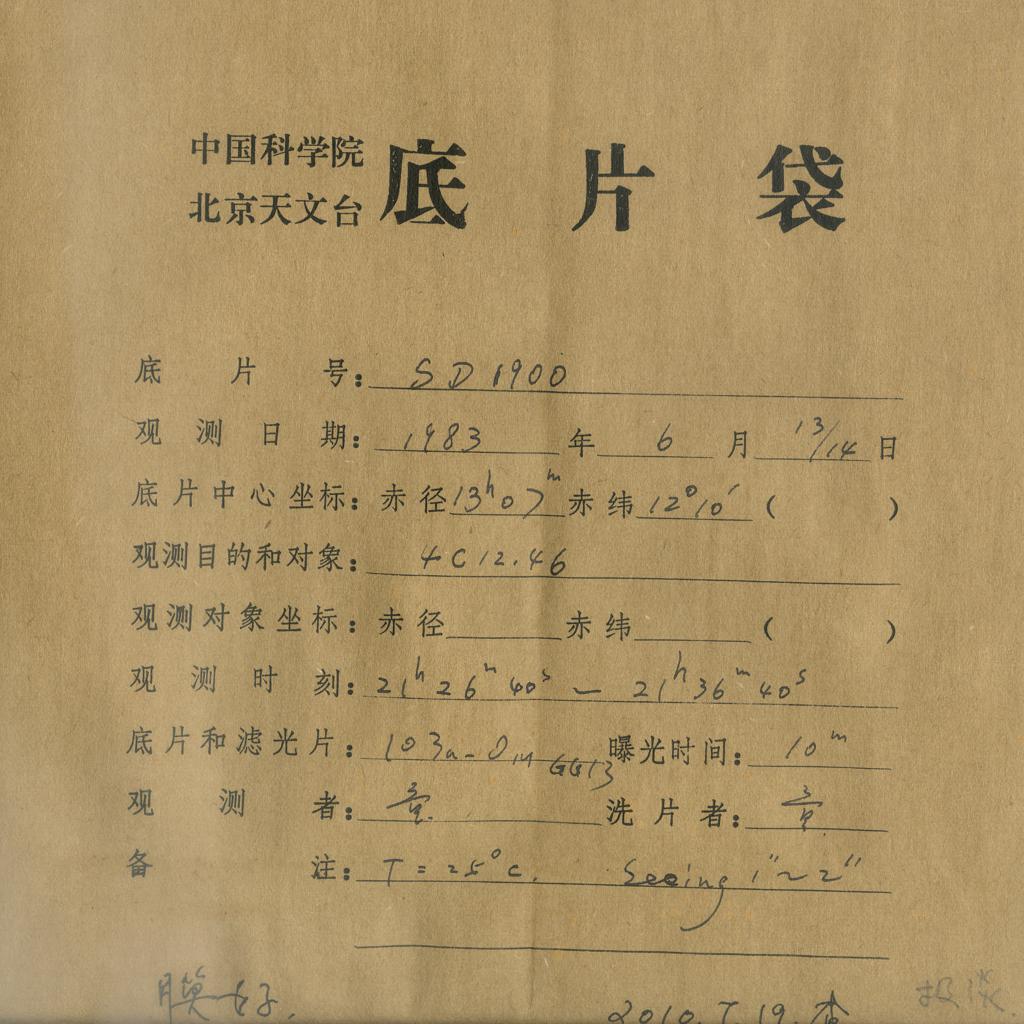 中国科学院
北京天文台 底片袋
底片号: SD 1900
观测日期: 1983年6月13/14日
底片中心坐标: 赤径13h07m赤纬12°10′( )
观测目的和对象: 4C12.46
观测对象坐标: 赤径 赤纬 ( )
观测时刻: 21h26m40s — 21h36m40s
底片和滤光片: 103a-O GG13 曝光时间: 10m
观测者: 洗片者:
备注: T=25°C. Seeing 1"~2"
膜好. 2010.7.19.查 极淡